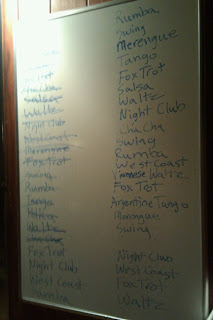 Trot
Salsa
Waltz
Night Club
West Coast
Merengue
Fox Trot
Swing
Rumba
Tango
Waltz
Fox Trot
Night Club
West Coast
Rumba
Rumba
Swing
Merengue
Tango
Fox Trot
Salsa
Waltz
Night Club
Cha Cha
Swing
Rumba
West Coast
Viennese Waltz
Fox Trot
Argentine Tango
Swing
Night Club
West Coast
Fox Trot
Waltz